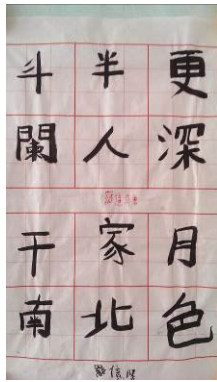 更深月色
半人家北
斗闌干南